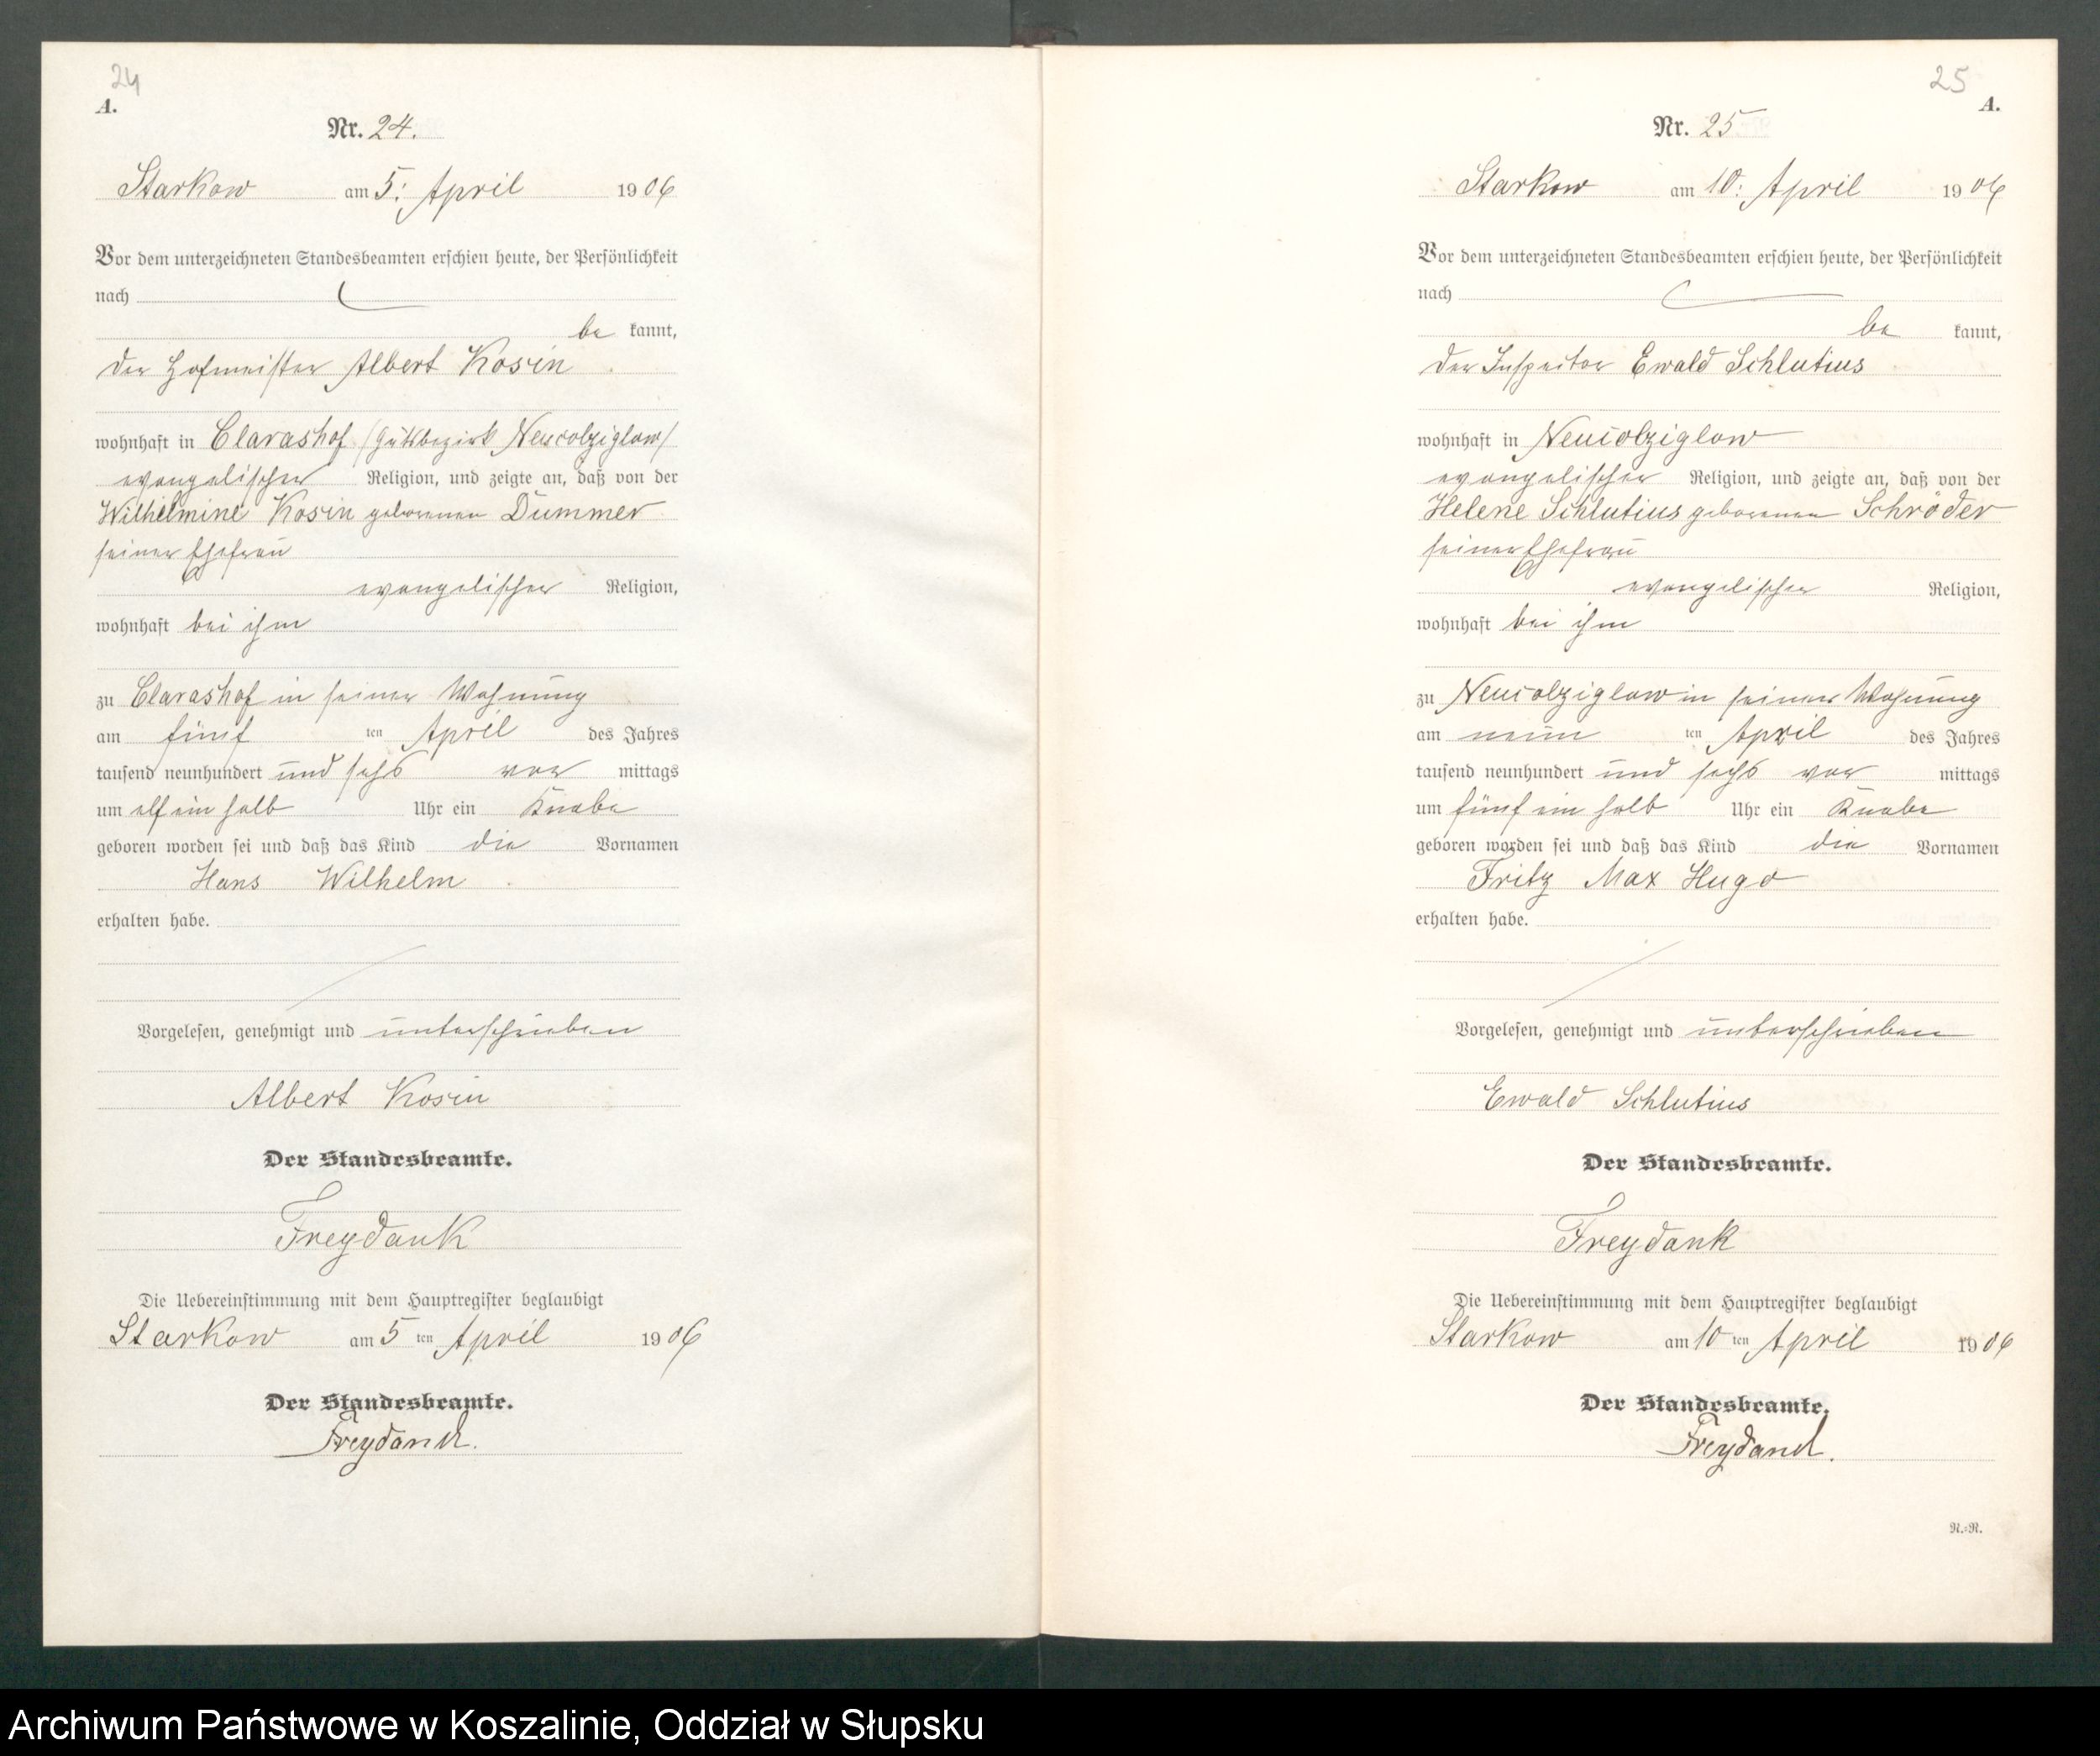 24
A.
Nr. 24.
Starkow am 5: April 1906
Vor dem unterzeichneten Standesbeamten erschien heute, der Persönlichkeit
nach
be kannt,
der Hofmeister Albert Kosin
wohnhaft in Clarashof /Gutsbezirk Neucolziglow/
evangelischer Religion, und zeigte an, daß von der
Wilhelmine Kosin geborenen Dummer
seiner Ehefrau
evangelischer Religion,
wohnhaft bei ihm
zu Clarashof in seiner Wohnung
am fünf ten April des Jahres
tausend neunhundert und sechs vor mittags
um elf ein halb Uhr ein Knabe
geboren worden sei und daß das Kind die Vornamen
Hans Wilhelm
erhalten habe.
Vorgelesen, genehmigt und unterschrieben
Albert Kosin
Der Standesbeamte.
Freydank
Die Uebereinstimmung mit dem Hauptregister beglaubigt
Starkow am 5 ten April 1906
Der Standesbeamte.
Freydank.
25
A.
Nr. 25
Starkow am 10: April 1906
Vor dem unterzeichneten Standesbeamten erschien heute, der Persönlichkeit
nach
be kannt,
der Inspector Ewald Schlutius
wohnhaft in Neucolziglow
evangelischer Religion, und zeigte an, daß von der
Helene Schlutius geborenen Schröder
seiner Ehefrau
evangelischer Religion,
wohnhaft bei ihm
zu Neucolziglow in seiner Wohnung
am neun ten April des Jahres
tausend neunhundert und sechs vor mittags
um fünf ein halb Uhr ein Knabe
geboren worden sei und daß das Kind die Vornamen
Fritz Max Hugo
erhalten habe.
Vorgelesen, genehmigt und unterschrieben
Ewald Schlutius
Der Standesbeamte.
Freydank
Die Uebereinstimmung mit dem Hauptregister beglaubigt
Starkow am 10 ten April 1906
Der Standesbeamte.
Freydank.
R.=R.
Archiwum Państwowe w Koszalinie, Oddział w Słupsku